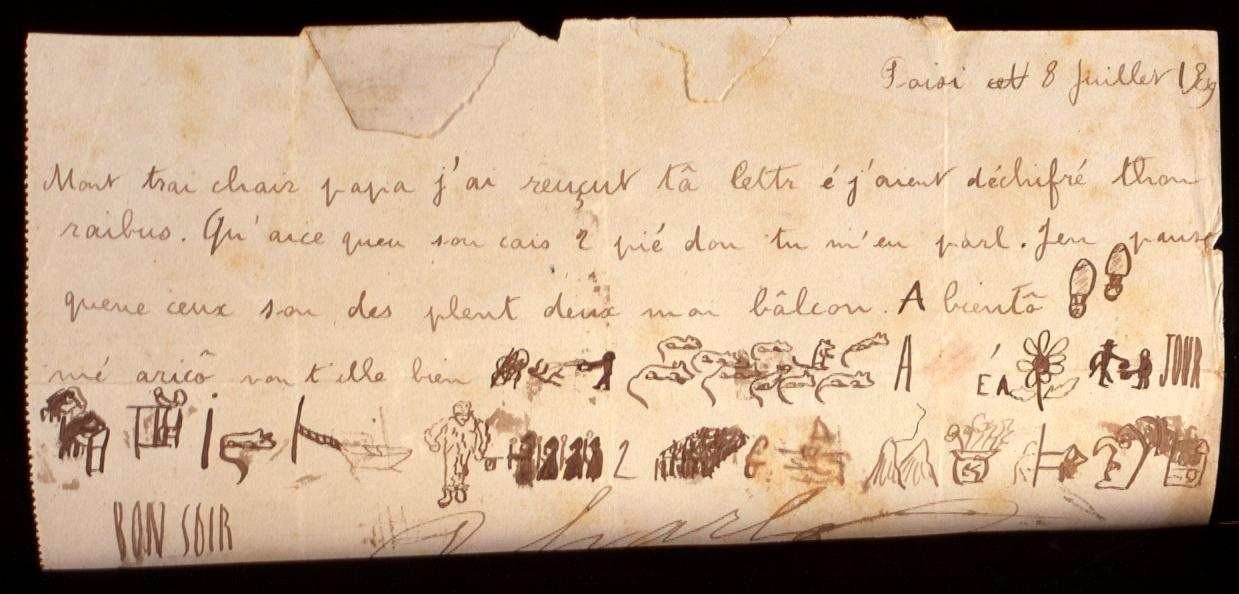 8 Juillet 189
Mont trai chair papa j'ai reuçut tâ lettr é j'aient déchifré thon
raibus. Qu'aice queu son cais 2 pié don tu m'en parl. Jeu panse
queue ceux son des plent deux mon bâlcon. A bientô
mé aricô von t'elle bien A ÉA JOUR
2
BON SOIR
Charlo